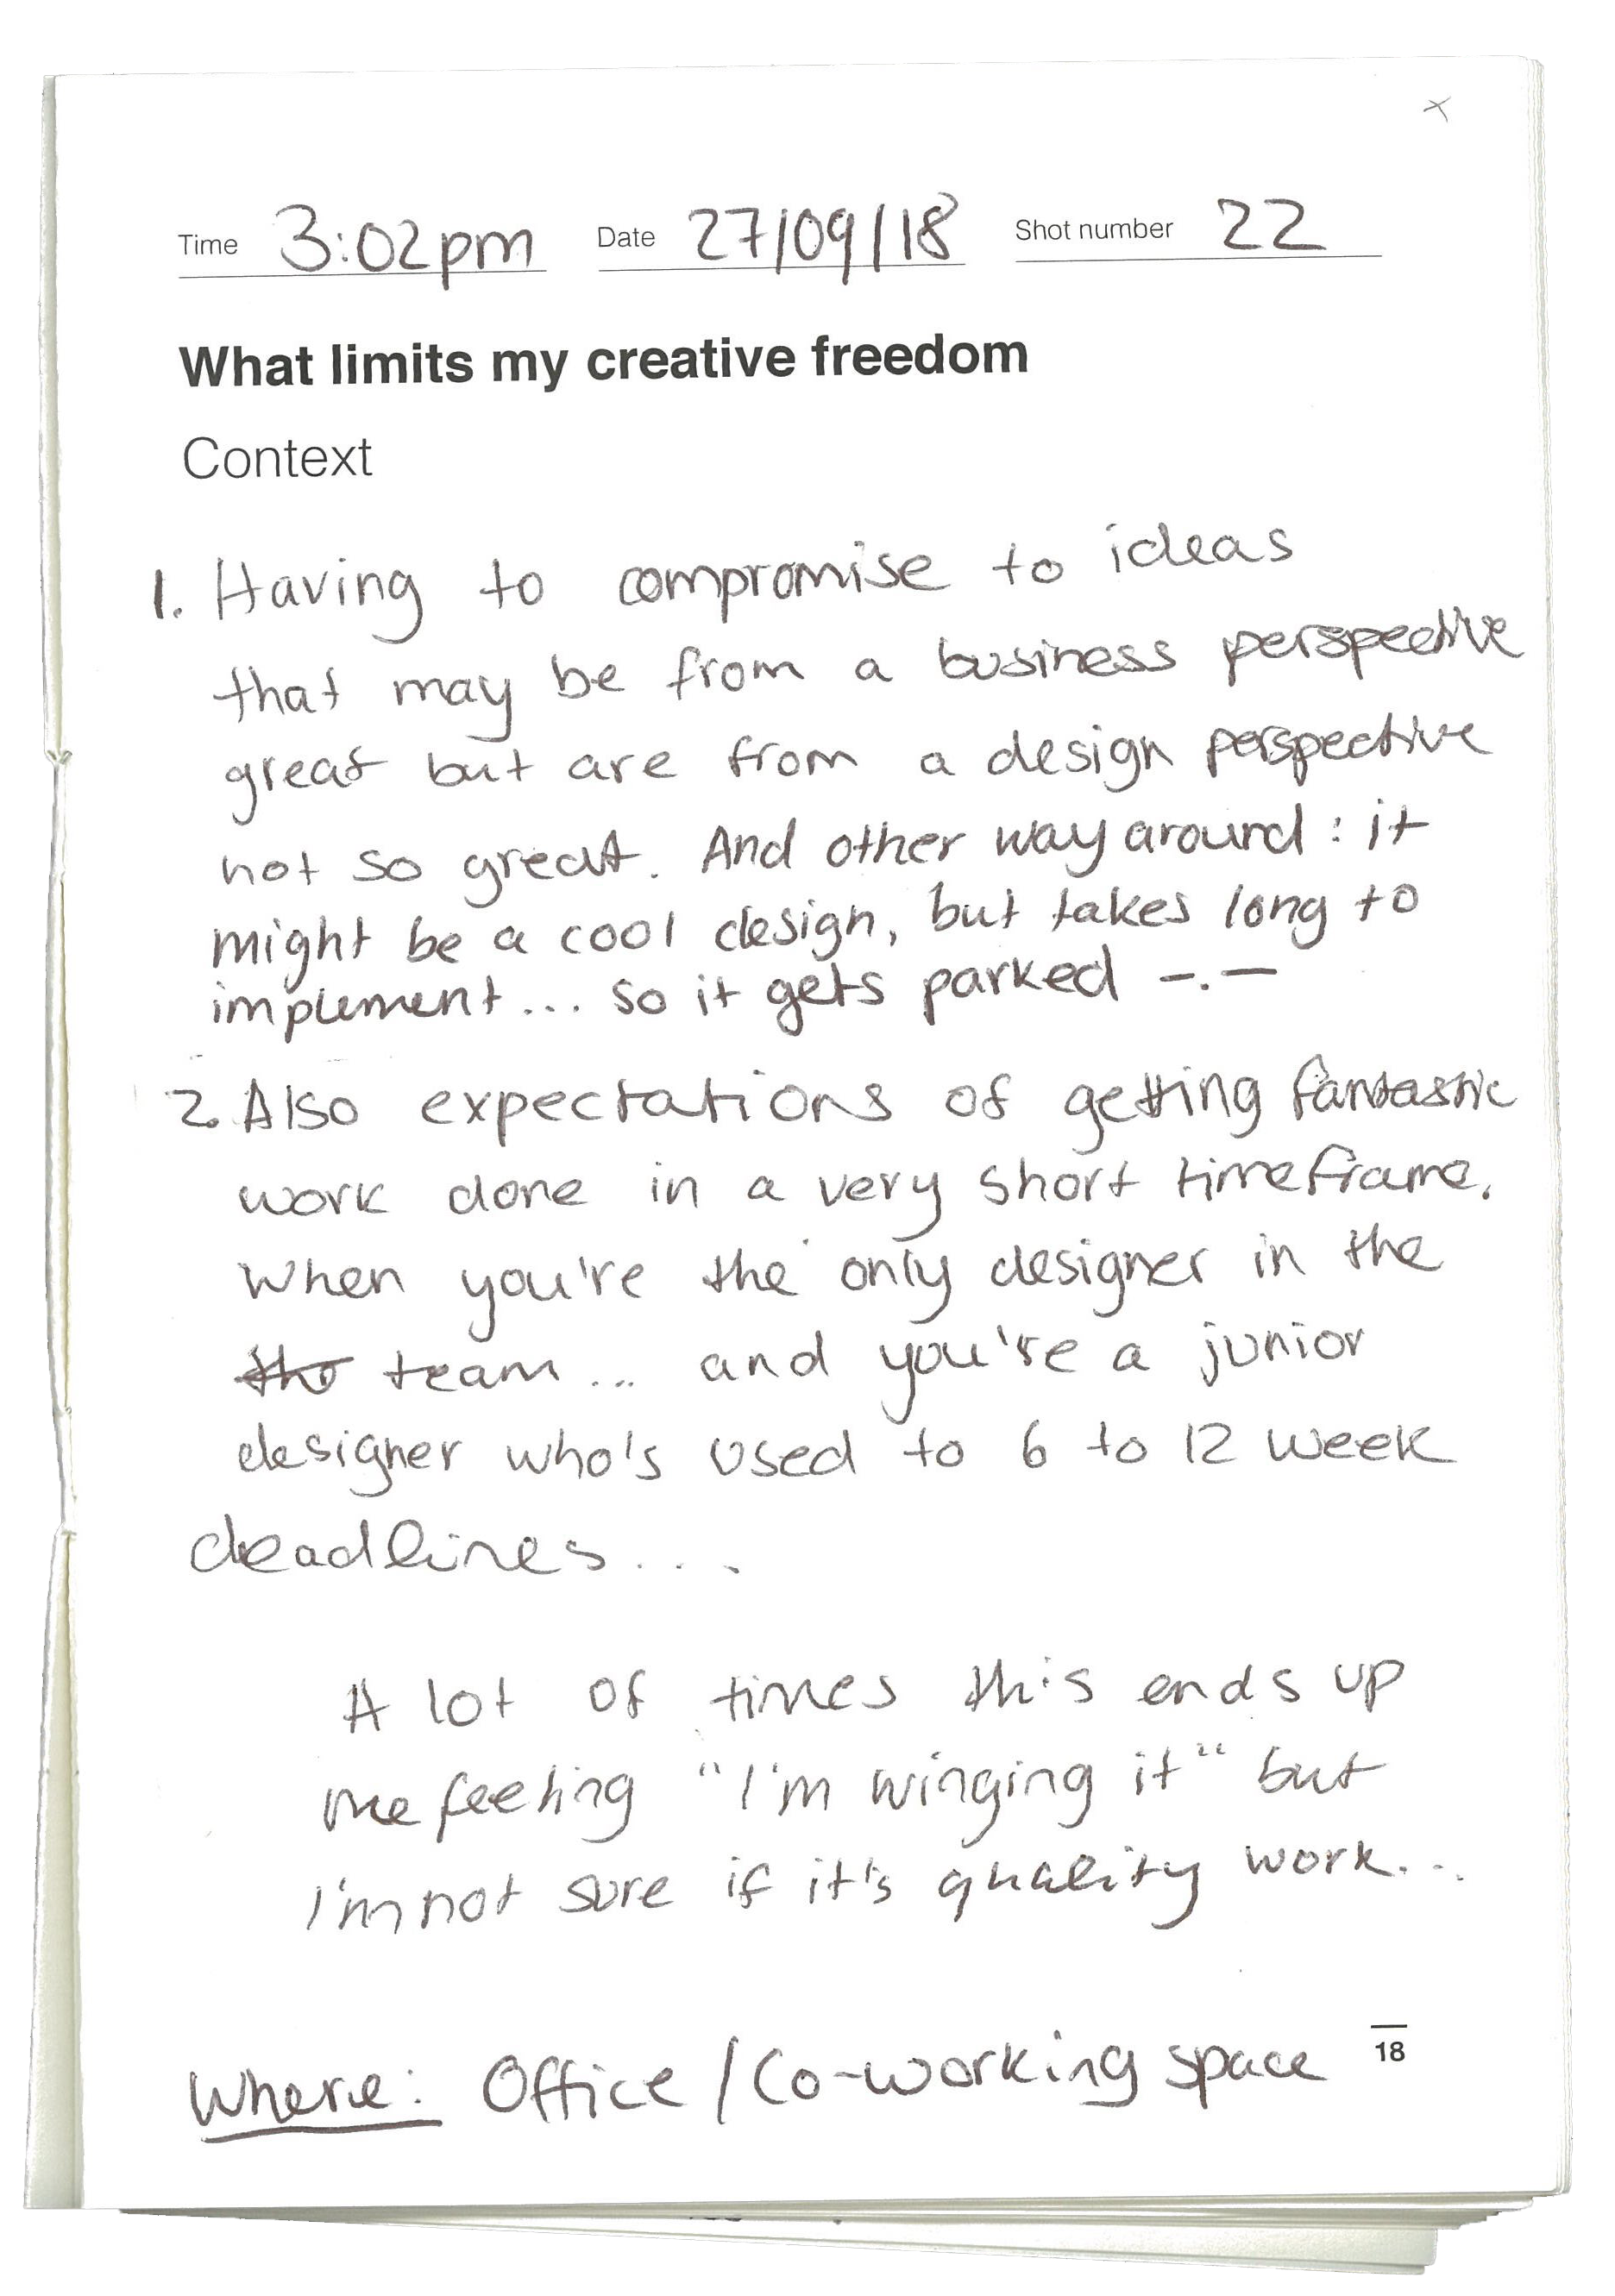 Time 3:02pm Date 27/09/18 Shot number 22
What limits my creative freedom
Context
1. Having to compromise to ideas
that may be from a business perspective
great but are from a design perspective
not so great. And other way around: it
might be a cool design, but takes long to
implement... so it gets parked -.-
2. Also expectations of getting fantastic
work done in a very short timeframe.
When you're the only designer in the
the team... and you're a junior
designer who's used to 6 to 12 week
deadlines....
A lot of times this ends up
me feeling "I'm winging it" but
I'm not sure if it's quality work...
18
Where: Office / Co-working space